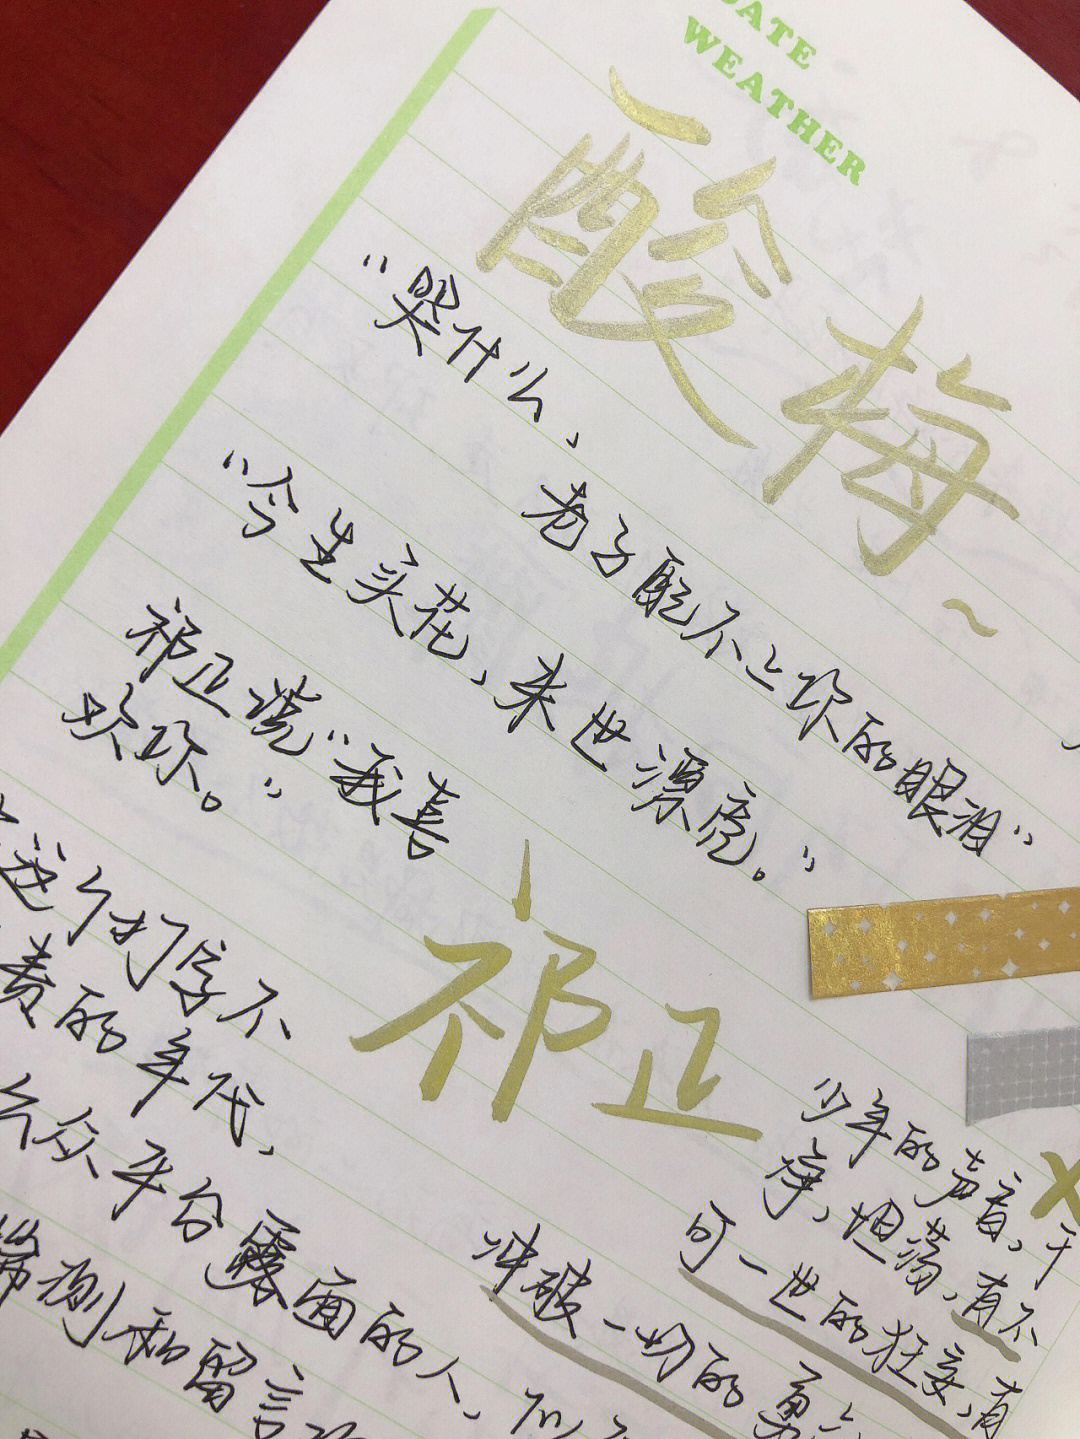 DATE
WEATHER
酸梅
“哭什么、
老子配不上你的眼泪”
“今生头花、来世漂亮。”
祁正说“我喜
欢你。”
祁正
这个打字不
责的年代、
公众平台露面的人，
揣测和留言
少年的声音，干
净，坦荡，有不
可一世的狂妄，有
冲破一切的勇